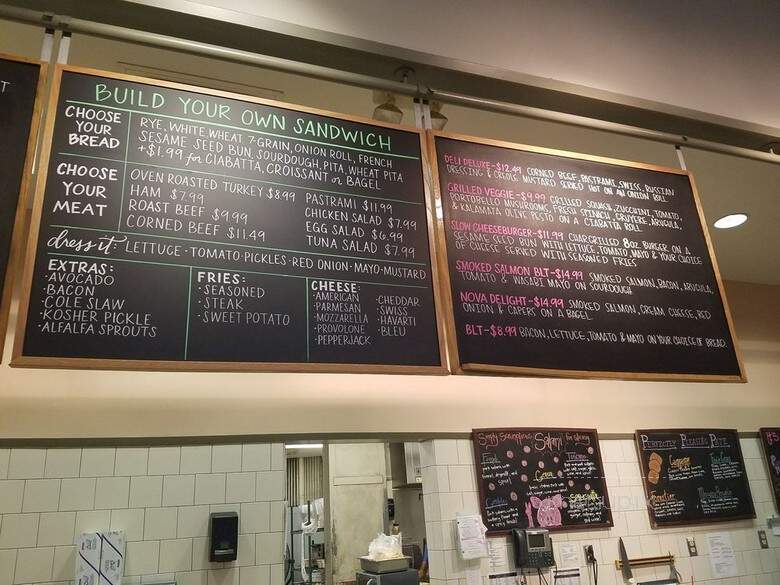 BUILD YOUR OWN SANDWICH
CHOOSE
YOUR
BREAD
RYE, WHITE, WHEAT, 7-GRAIN, ONION ROLL, FRENCH
SESAME SEED BUN, SOURDOUGH, PITA, WHEAT PITA
+$1.99 for CIABATTA, CROISSANT or BAGEL
CHOOSE
YOUR
MEAT
OVEN ROASTED TURKEY $8.99
HAM $7.99
ROAST BEEF $9.99
CORNED BEEF $11.49
PASTRAMI $11.99
CHICKEN SALAD $7.99
EGG SALAD $6.99
TUNA SALAD $7.99
dress it: LETTUCE · TOMATO · PICKLES · RED ONION · MAYO · MUSTARD
EXTRAS:
·AVOCADO
·BACON
·COLE SLAW
·KOSHER PICKLE
·ALFALFA SPROUTS
FRIES:
·SEASONED
·STEAK
·SWEET POTATO
CHEESE:
·AMERICAN
·PARMESAN
·MOZZARELLA
·PROVOLONE
·PEPPERJACK
·CHEDDAR
·SWISS
·HAVARTI
·BLEU
DELI DELUXE-$12.49 CORNED BEEF, PASTRAMI, SWISS, RUSSIAN
DRESSING & CREOLE MUSTARD SERVED HOT ON AN ONION ROLL
GRILLED VEGGIE-$9.99 GRILLED SQUASH, ZUCCHINI, TOMATO,
PORTOBELLO MUSHROOMS, FRESH SPINACH, GRUYERE, ARUGULA,
& KALAMATA OLIVE PESTO ON A CIABATTA ROLL
SLOW CHEESEBURGER-$11.99 CHARGRILLED 8oz. BURGER ON A
SESAME SEED BUN WITH LETTUCE, TOMATO, MAYO & YOUR CHOICE
OF CHEESE SERVED WITH SEASONED FRIES
SMOKED SALMON BLT-$14.99 SMOKED SALMON, BACON, ARUGULA,
TOMATO & WASABI MAYO ON SOURDOUGH
NOVA DELIGHT-$14.99 SMOKED SALMON, CREAM CHEESE, RED
ONION & CAPERS ON A BAGEL
BLT-$8.99 BACON, LETTUCE, TOMATO & MAYO ON YOUR CHOICE OF BREAD
Simply Scrumptious Salami for slicing
PERFECTLY PLEASING PATE